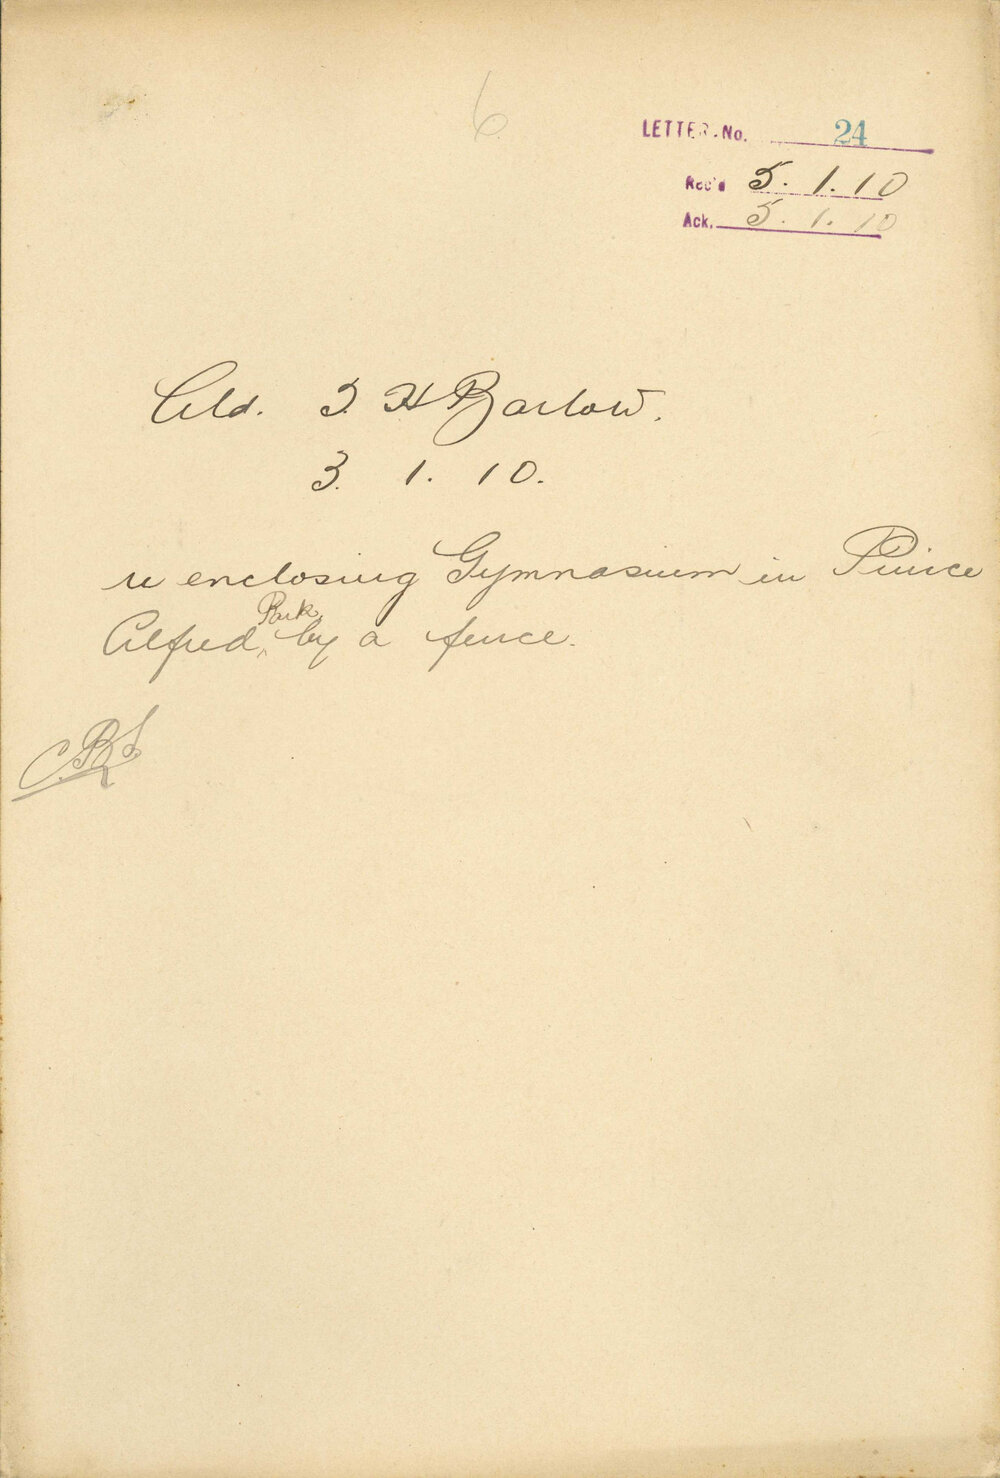 6
LETTER No. 24
Rec'd 5. 1. 10
Ack. 5. 1. 10
Ald. T. H Barlow.
3. 1. 10.
re enclosing Gymnasium in Prince
Alfred Park by a fence.